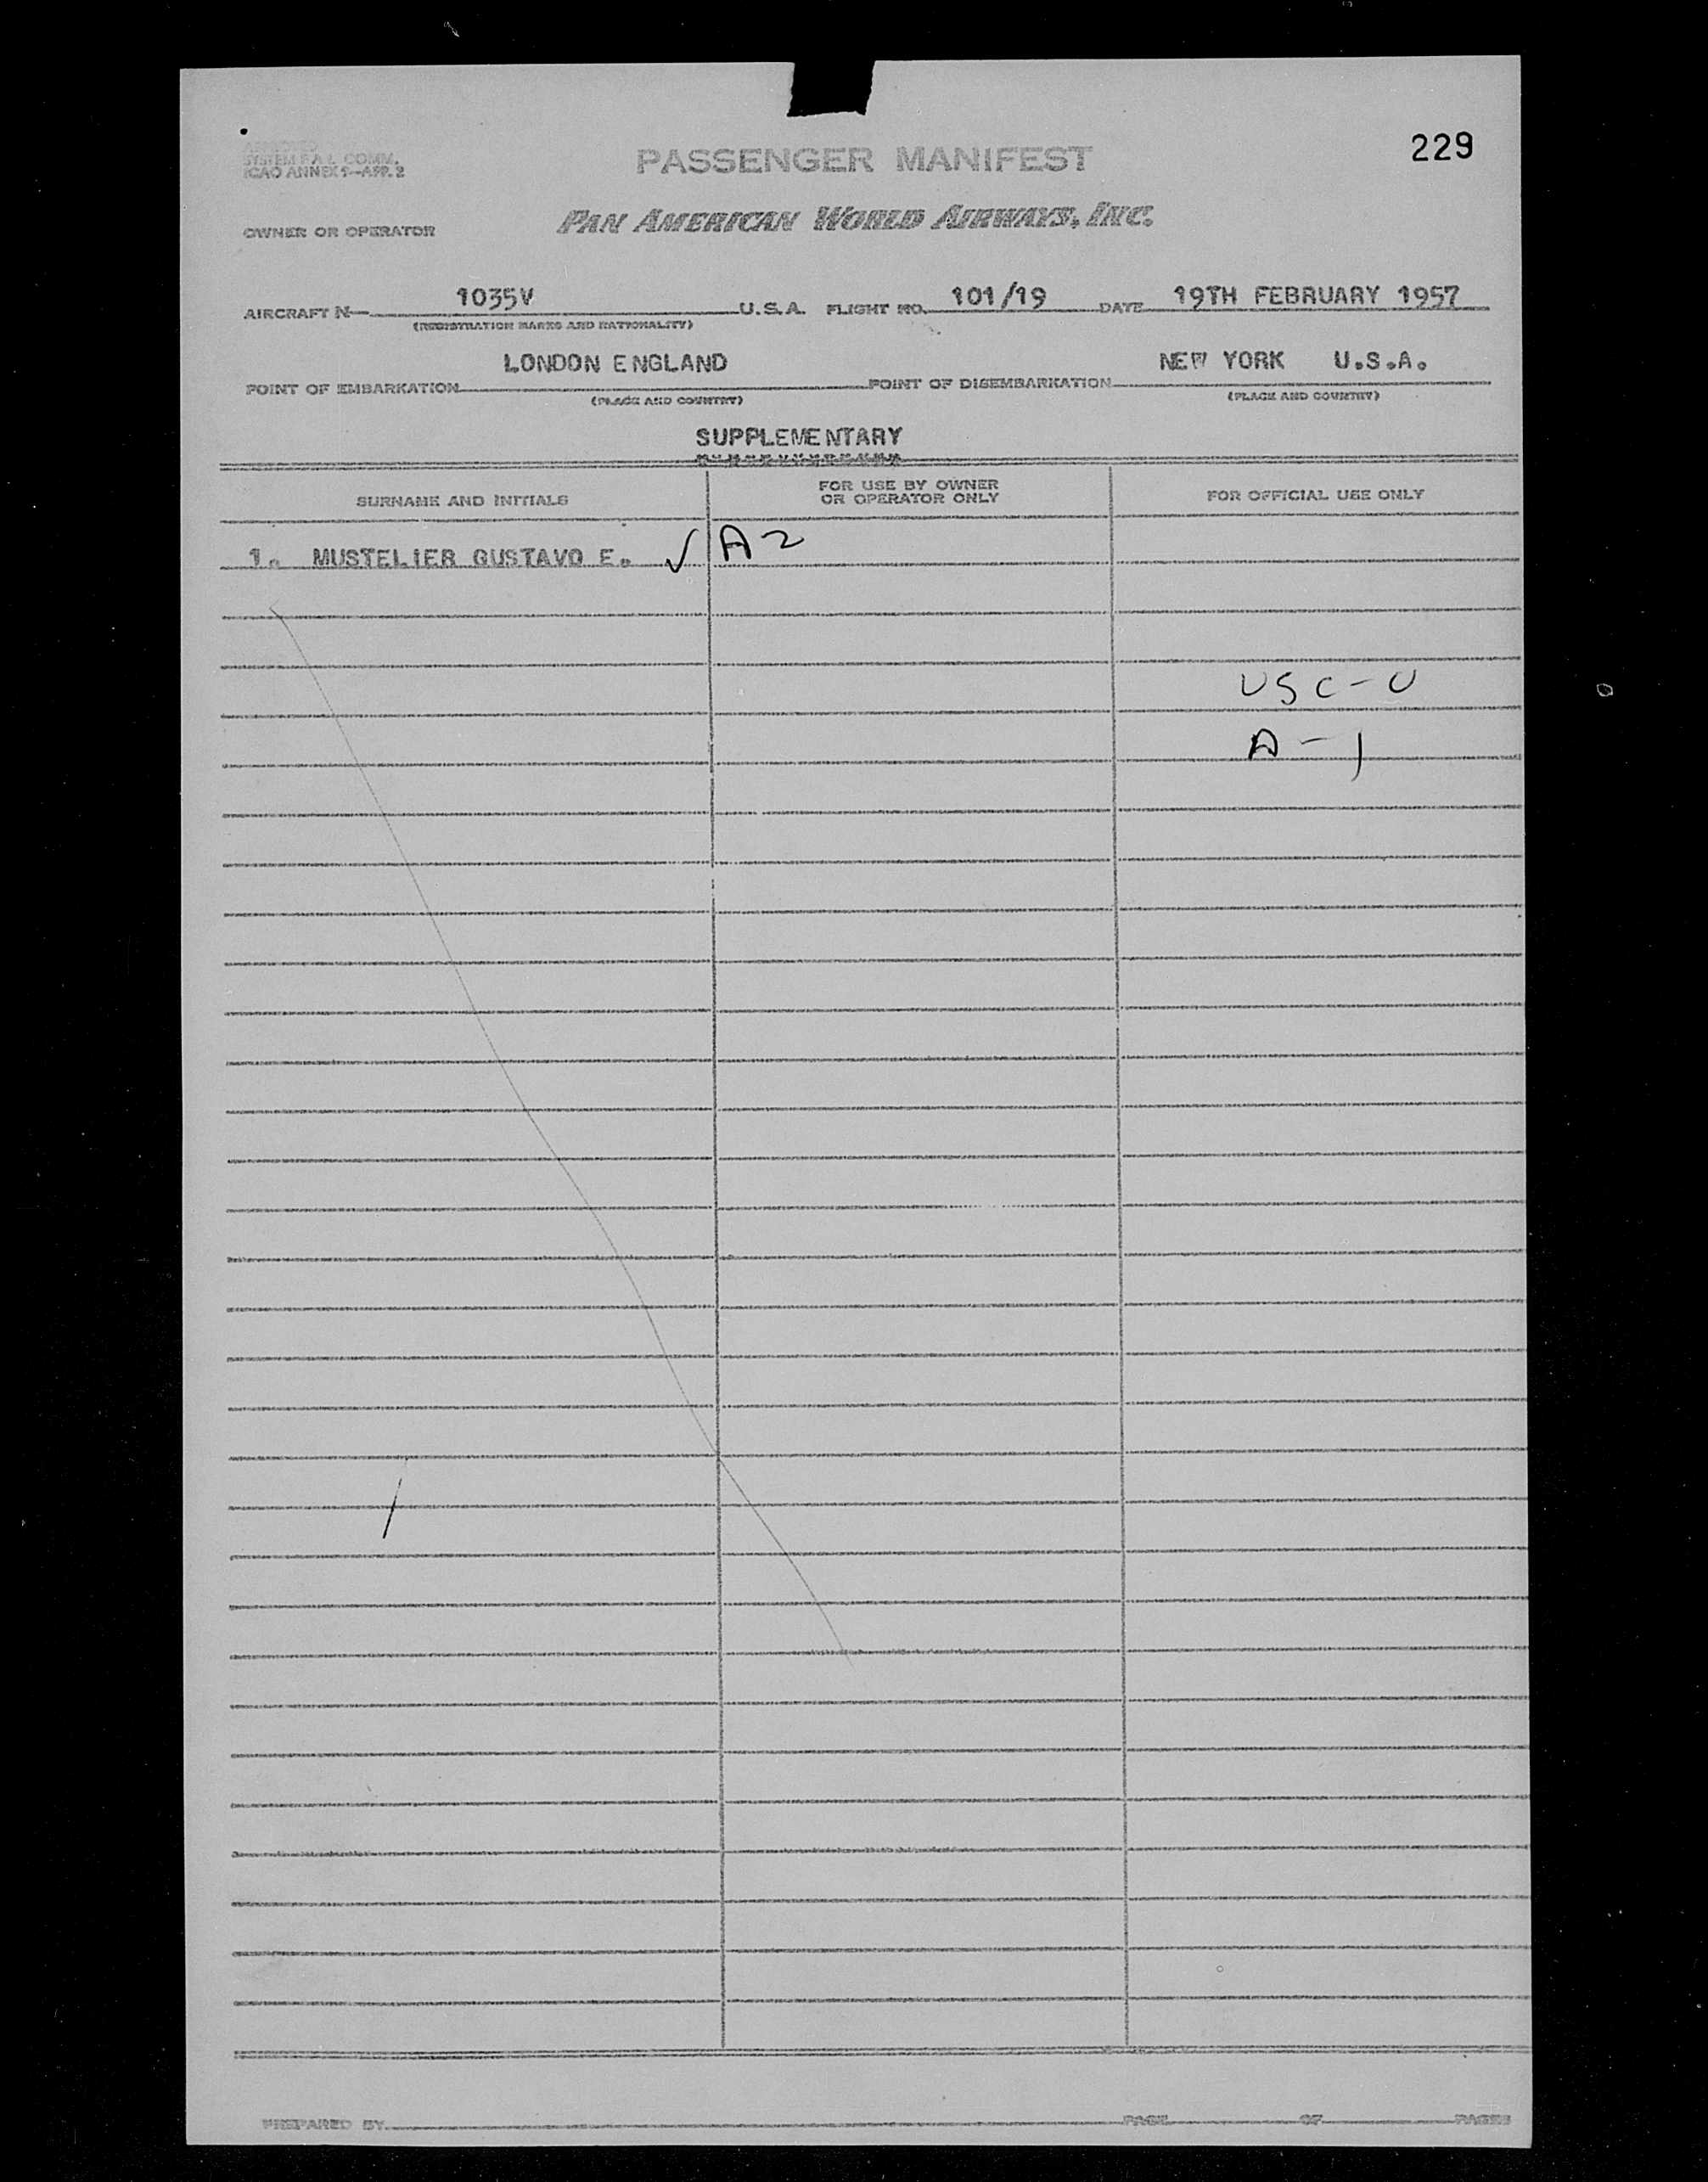 229
SYSTEM F.A.L. COMM.
ICAO ANNEX 9-APP. 2
PASSENGER MANIFEST
OWNER OR OPERATOR PAN AMERICAN WORLD AIRWAYS, INC.
AIRCRAFT N- 1035V U.S.A. FLIGHT NO. 101/19 DATE 19TH FEBRUARY 1957
(REGISTRATION MARKS AND NATIONALITY)
POINT OF EMBARKATION LONDON ENGLAND POINT OF DISEMBARKATION NEW YORK U.S.A.
(PLACE AND COUNTRY) (PLACE AND COUNTRY)
SUPPLEMENTARY
SURNAME AND INITIALS FOR USE BY OWNER OR OPERATOR ONLY FOR OFFICIAL USE ONLY
1. MUSTELIER GUSTAVO E. ✓ A2
USC-0
A-1
PREPARED BY PAGE OF PAGES